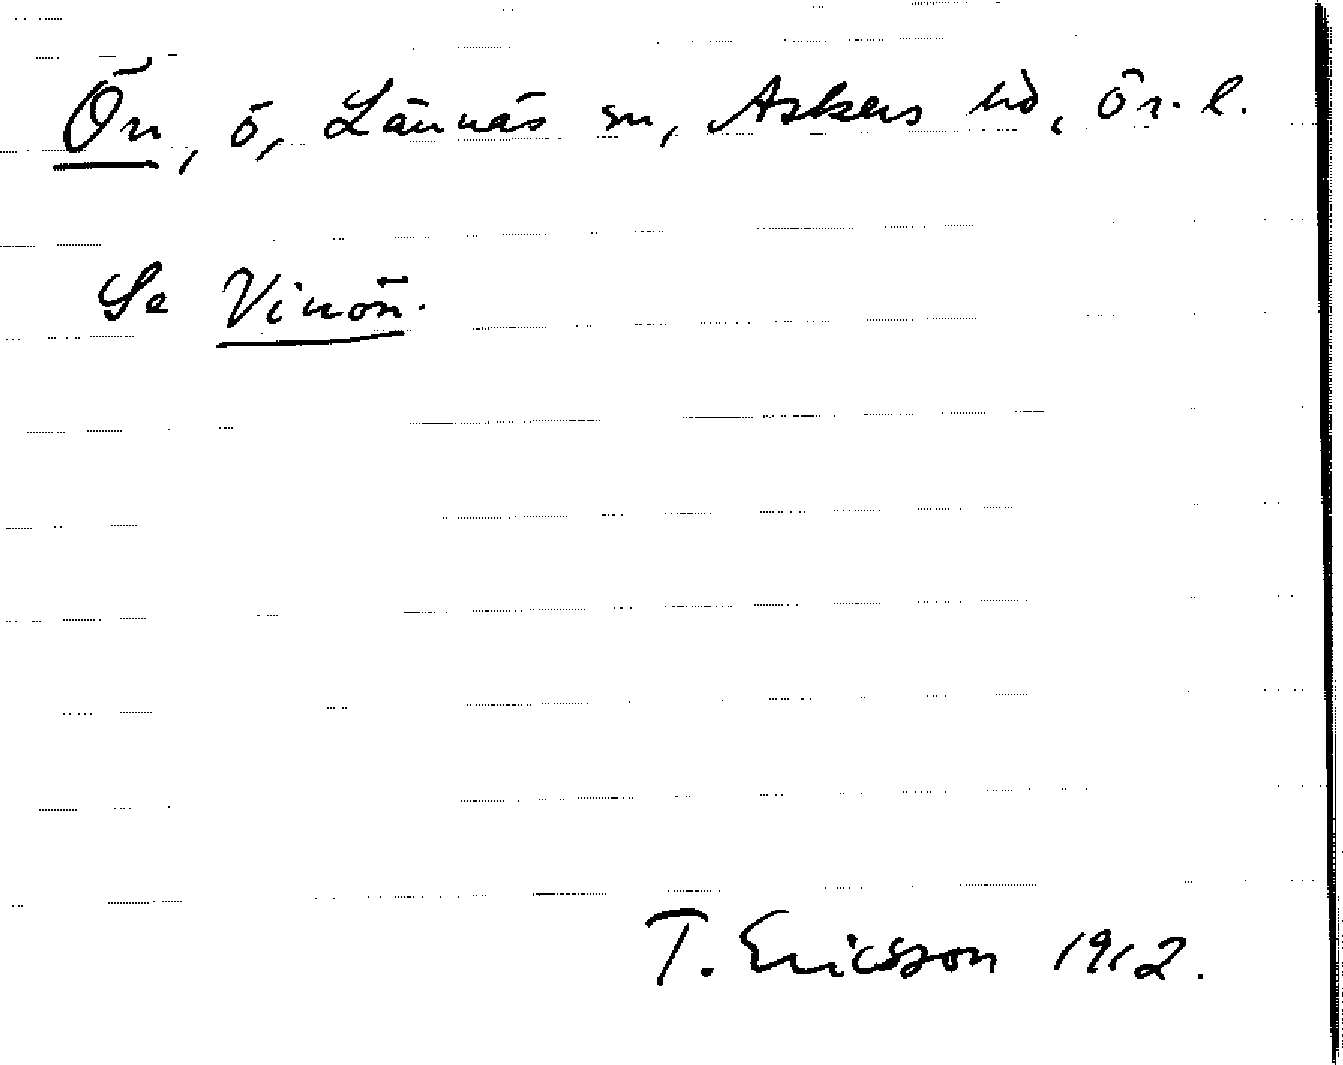 Ön, ö, Lännäs sn, Askers hd, Ör. l.
Se Vinön.
T. Ericsson 1912.